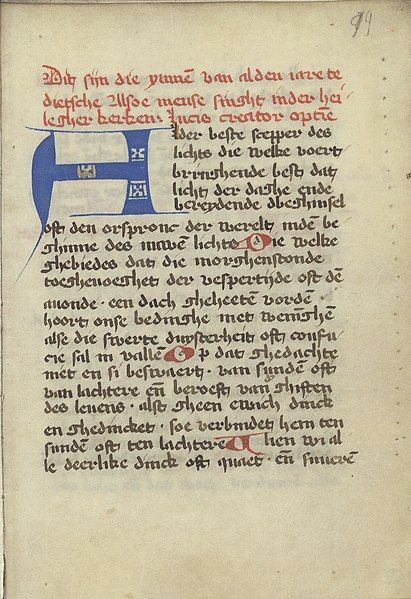 99
Dit sijn die ymnen van alden iare te
dietsche Alsoe mense singht inder hei-
legher kerken: lucis creator optime
Alder beste scepper des
lichts die welke voert
bringhende best dat
licht der daghe ende
bereydende dbeghinsel
oft den orspronc der werelt inden be
ghinne des nuwen lichts Die welke
ghebiedes dat die morghenstonde
toeghevoeghet der vespertijde oft den
avonde · een dach gheheeten vorde
hoort onse bedinghe met weninghen
alse die swerte duysterheit oft confu-
cie sal in vallen Op dat ghedachte
met en si beswaert · van sunden oft
van lachtere en beroeft van ghiften
des levens · alst gheen ewich dinck
en ghedincket · soe verbindet hem ten
sunden oft ten lachtere Clien wi al
le deerlike dinck oft quaet · en suveren